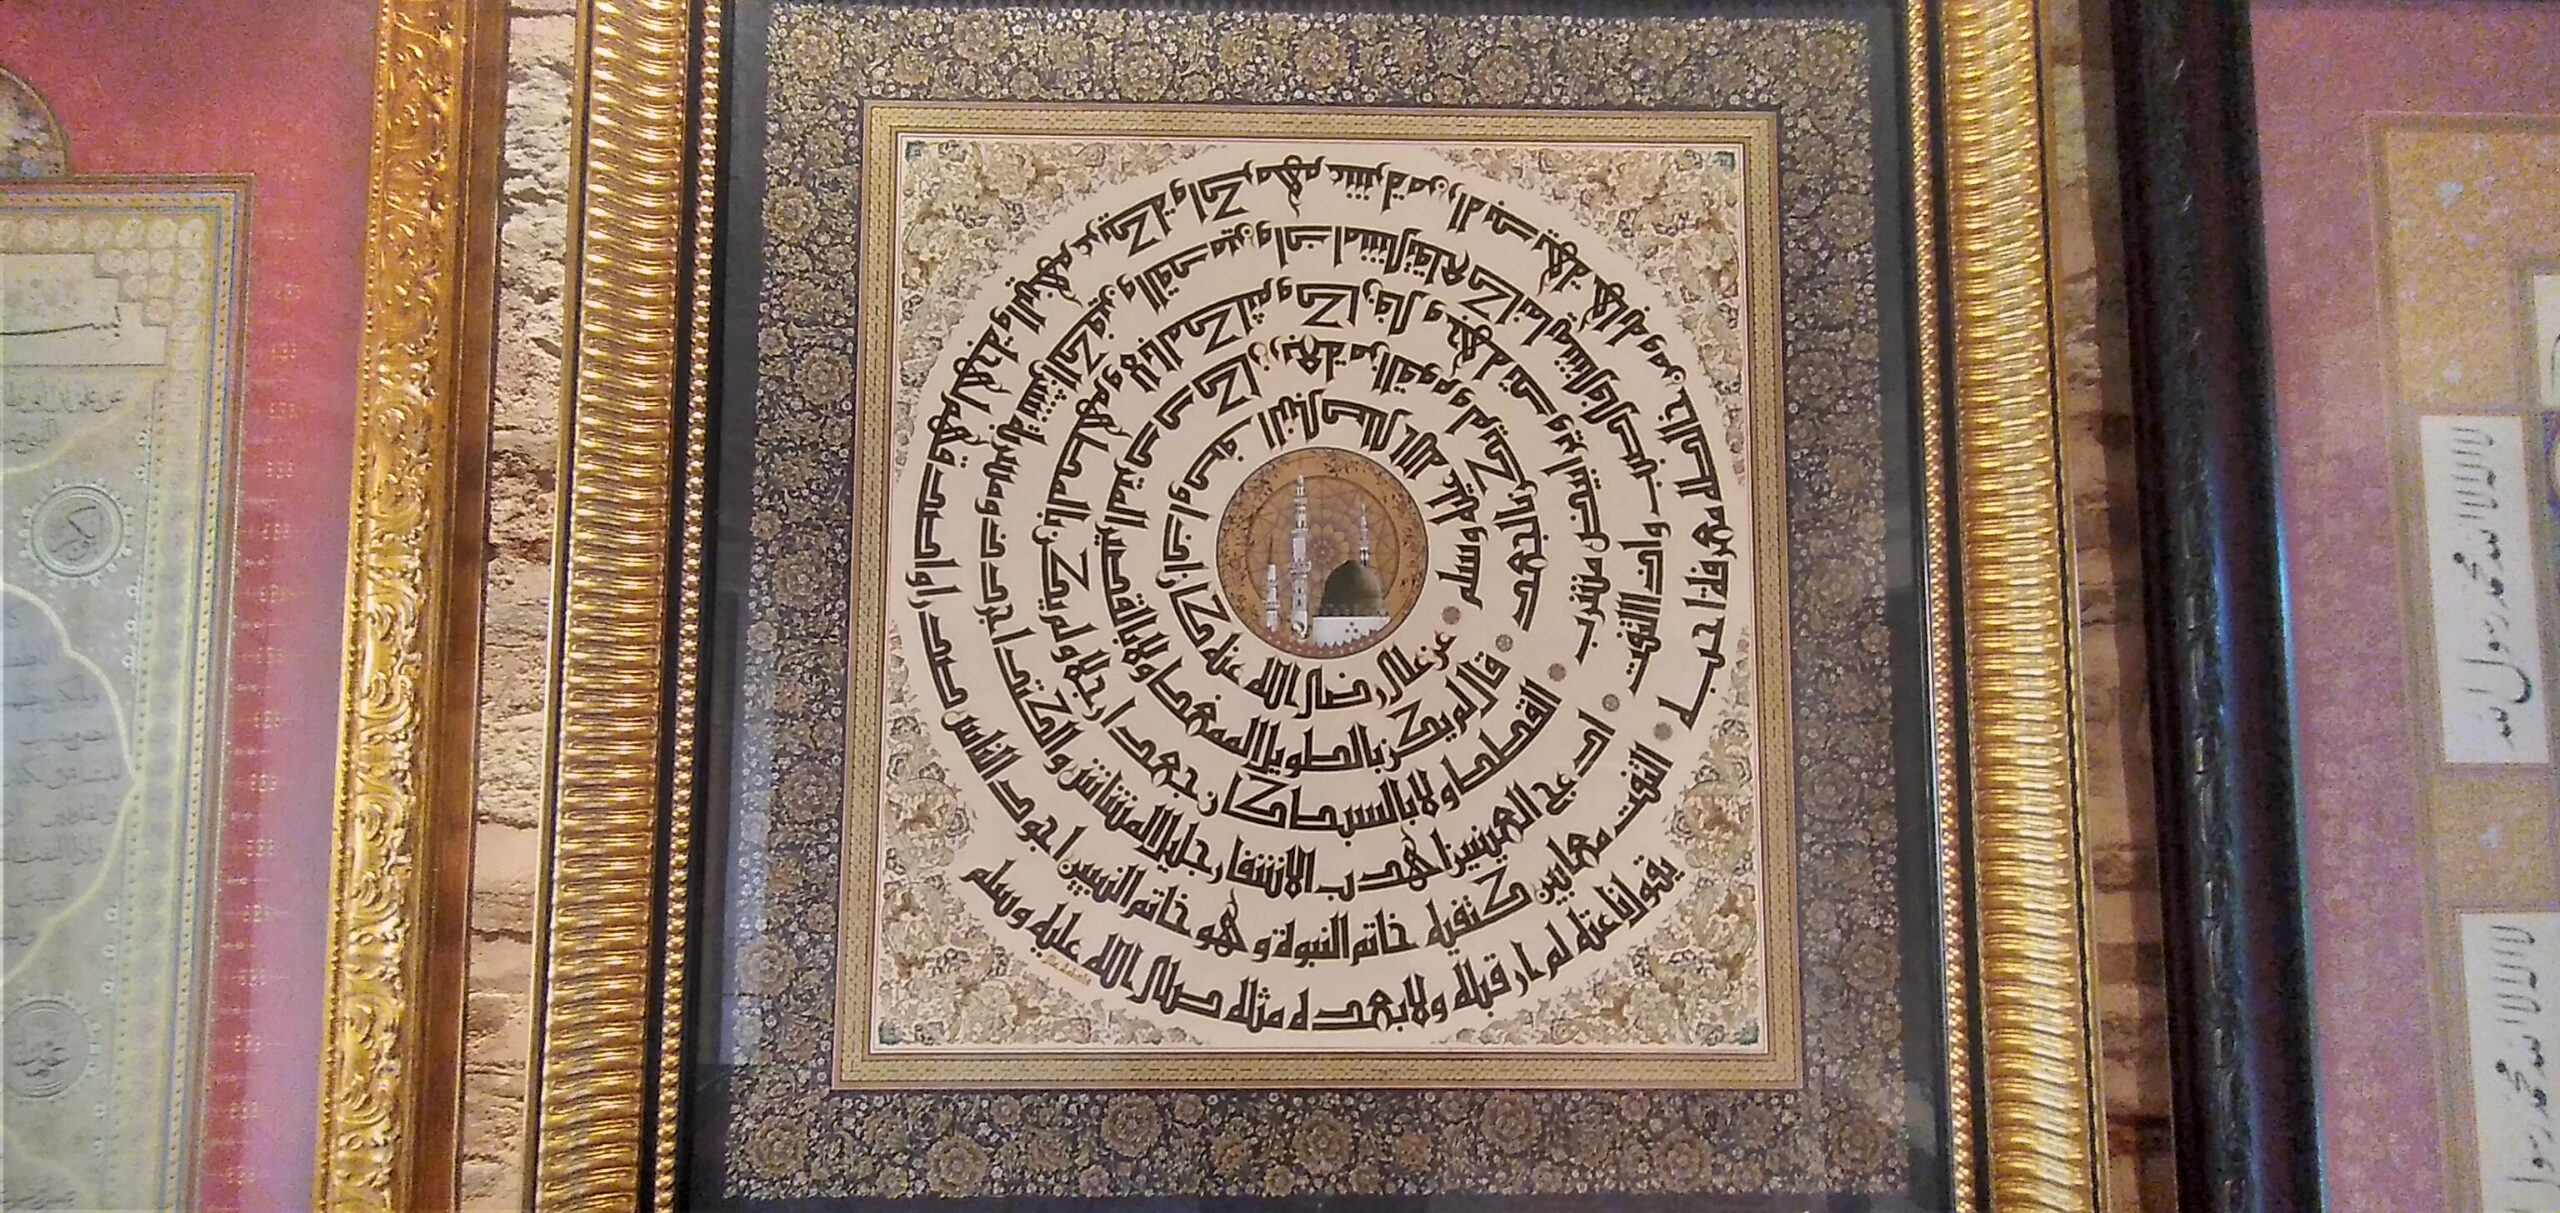 عن علي رضي الله عنه كان اذا وصف النبي صلى الله عليه وسلم
قال لم يكن بالطويل الممغط ولا بالقصير المتردد وكان ربعة من القوم ولم يكن بالجعد
القطط ولا بالسبط كان جعدا رجلا ولم يكن بالمطهم ولا بالمكلثم وكان في وجهه تدوير ابيض مشرب
ادعج العينين اهدب الاشفار جليل المشاش والكتد اجرد ذو مسربة شثن الكفين والقدمين اذا مشى تقلع كانما يمشي في صبب واذا التفت
التفت معا بين كتفيه خاتم النبوة وهو خاتم النبيين اجود الناس صدرا واصدقهم لهجة والينهم عريكة واكرمهم عشرة من راه بديهة هابه ومن خالطه معرفة احبه
يقول ناعته لم ار قبله ولا بعده مثله صلى الله عليه وسلم
لا اله الا الله محمد رسول الله
لا اله الا الله محمد رسول